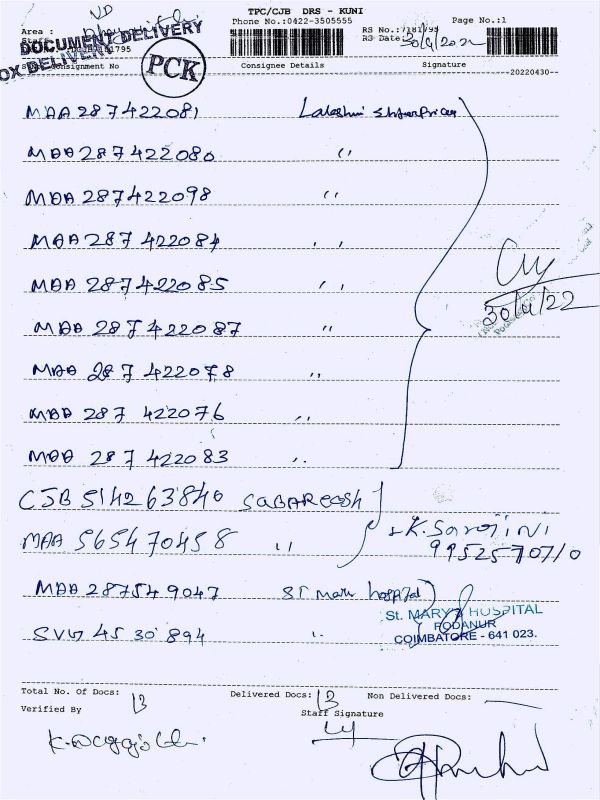 TPC/CJB DRS - KUNI
Phone No.:0422-3505555 Page No.:1
Area : RS No.:7181795
RS Date: 30/4/2022
DOCUMENT DELIVERY
PCK
Consignment No Consignee Details Signature
20220430
MAA 287422081 Lakshmi
MAA 287422080 "
MAA 287422098 "
MAA 287422084 "
MAA 287422085 "
30/4/22
MAA 287422087 "
MAA 287422078 "
MAA 287422076 "
MAA 287422083 "
CJB 514263840 SABAREESH
MAA 565470458 " K. Sarojini
9952570710
MAA 287549047 ST mary hospital
St. MARY'S HOSPITAL
PODANUR
SVG 4530894 " COIMBATORE - 641 023.
Total No. Of Docs: 13 Delivered Docs: 13 Non Delivered Docs: —
Verified By Staff Signature